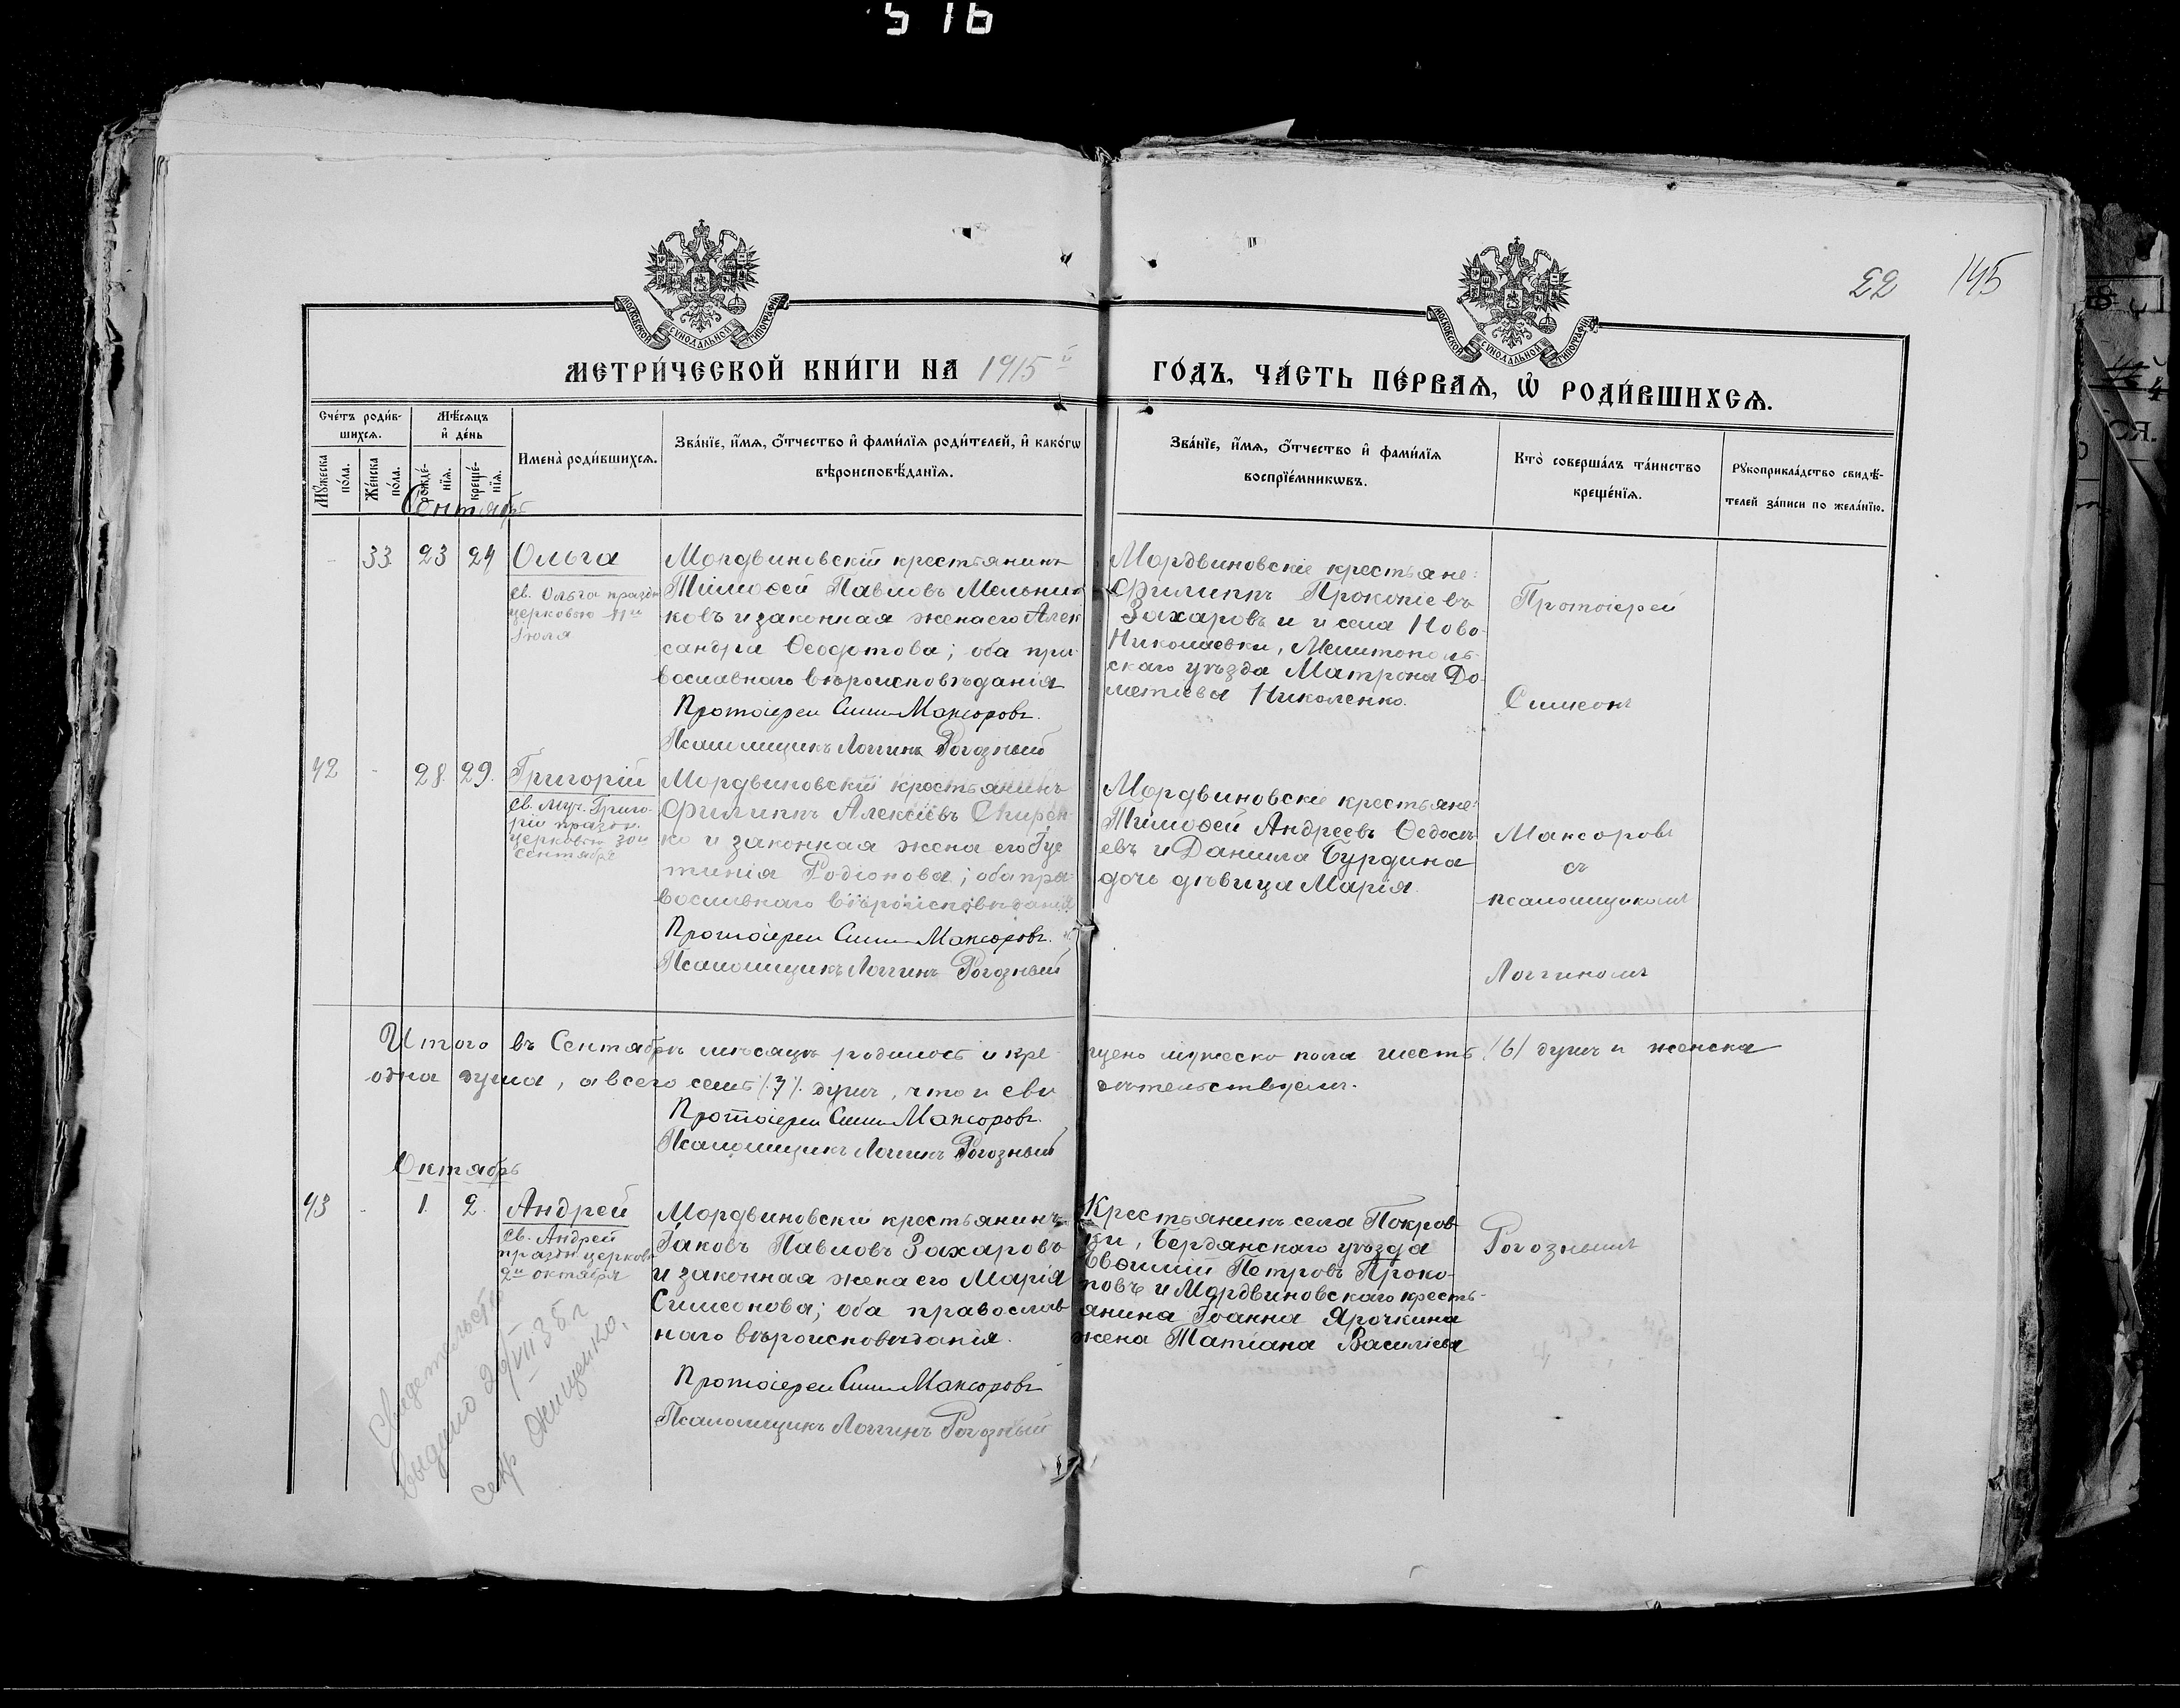 516
22 145
МОСКОВСКОЙ СѴНОДАЛЬНОЙ ТИПОГРАФІИ
МОСКОВСКОЙ СѴНОДАЛЬНОЙ ТИПОГРАФІИ
МЕТРИ́ЧЕСКОЙ КНИ́ГИ НА 1915й ГО́ДЪ, ЧА́СТЬ ПЕ́РВАѦ, Ѡ҆ РОДИ́ВШИХСѦ.
Сче́тъ роди́в-
шихсѧ.
Мѣ́сѧцъ
и҆ де́нь
Мꙋ́жеска
по́ла.
Же́нска
по́ла.
рожде́-
нїѧ.
креще́-
нїѧ.
Имена̀ роди́вшихсѧ.
Зва́нїе, и҆́мѧ, ѻ҆́тчество и҆ фами́лїѧ роди́телей, и҆ како́гѡ
вѣроисповѣ́данїѧ.
Зва́нїе, и҆́мѧ, ѻ҆́тчество и҆ фами́лїѧ
воспрїе́мникѡвъ.
Кто̀ соверша́лъ та́инство
креще́нїѧ.
Рꙋкоприкла́дство свидѣ́-
телей за́писи по жела́нїю.
Сентябрь
- 33 23 24 Ольга
св. Ольга праздн
церковью 11го
Iюля
Мордвиновскій крестьянинъ
Тимоѳей Павловъ Мельни-
ковъ и законная жена его Алек
сандра Ѳеодотова; оба пра-
вославнаго вѣроисповѣданія
Протоіерей Сим Максоровъ.
Псаломщикъ Логгинъ Рогозный
Мордвиновскіе крестьяне:
Филиппъ Прокопіевъ
Захаровъ и и села Ново-
Николаевки, Мелитополь-
скаго уѣзда Матрона До-
метіева Николенко.
Протоіерей
Симеонъ
42 - 28. 29. Григорій
Св. муч. Григо-
рій праздн.
церковью 30го
сентября
Мордвиновскій крестьянинъ
Филиппъ Алексіевъ Спирен-
ко и законная жена его Iус
тинія Родіонова; оба пра-
вославнаго вѣроисповѣданія
Протоіерей Сим Максоровъ.
Псаломщикъ Логгинъ Рогозный
Мордвиновскіе крестьяне:
Тимоѳей Андреевъ Ѳедосѣ
евъ и Даніила Бурдина
дочь дѣвица Марія.
Максоровъ
съ
псаломщикомъ
Логгиномъ
Итого въ Сентябрѣ мѣсяцѣ родилось и кре- щено мужеско пола шесть /6/ душъ и женска
одна душа, а всего семь /7/. душъ, что и сви дѣтельствуемъ.
Протоіерей Сим Максоровъ.
Псаломщикъ Логгинъ Рогозный
Октябрь
43 - 1 2. Андрей
св. Андрей
праздн. церковью
2го октября
Мордвиновскій крестьянинъ
Iаковъ Павловъ Захаровъ
и законная жена его Марія
Симеонова; оба православ
наго вѣроисповѣданія.
Протоіерей Сим Максоровъ
Псаломщикъ Логгинъ Рогозный
Крестьянинъ села Покров
ки, Бердянскаго уѣзда
Евѳимій Петровъ Проко-
повъ и Мордвиновскаго кресть-
янина Iоанна Ярочкина
жена Татіана Василіева
Рогознымъ
Свидетельство
выдано 29/VII 35 г
секр Онищенко.